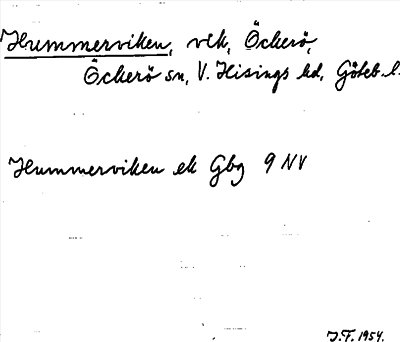 Hummerviken, vlk, Öckerö,
Öckerö sn, V. Hisings hd, Göteb. l.
Hummerviken ek Gbg 9 NV
J.F. 1954.